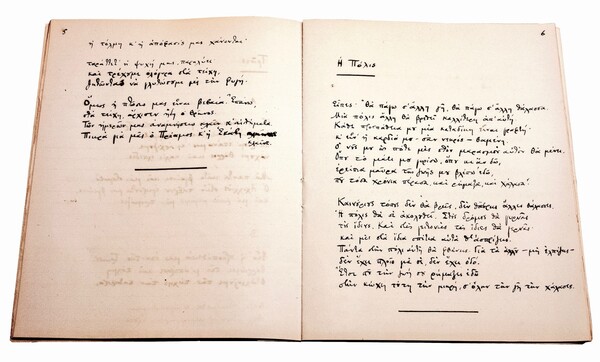 5
ἡ τόλμη κ' ἡ ἀπόφασίς μας χάνονται·
ταράττετ' ἡ ψυχή μας, παραλύει·
καὶ τρέχουμε ὁλόγυρα στὰ τείχη,
ζητώντας νὰ γλυτώσουμε μὲ τὴν φυγή.
Ὅμως ἡ πτῶσις μας εἶναι βεβαία. Ἐπάνω,
στὰ τείχη, ἄρχισεν ἤδη ὁ θρῆνος.
Τῶν ἡμερῶν μας ἀναμνήσεις κλαῖν κ' αἰσθήματα.
Πικρὰ γιὰ μᾶς ὁ Πρίαμος κ' ἡ Ἑκάβη
κλαῖνε.
6
Ἡ Πόλις
Εἶπες· «Θὰ πάγω σ' ἄλλη γῆ, θὰ πάγω σ' ἄλλη θάλασσα.
Μιὰ πόλις ἄλλη θὰ βρεθεῖ καλλίτερη ἀπ' αὐτή.
Κάθε προσπάθεια μου μιὰ καταδίκη εἶναι γραφτή·
κ' εἶν' ἡ καρδιά μου — σὰν νεκρὸς — θαμένη.
Ὁ νοῦς μου ὣς πότε μὲς στὸν μαρασμὸν αὐτὸν θὰ μένει.
Ὅπου τὸ μάτι μου γυρίσω, ὅπου κι ἂν δῶ,
ἐρείπια μαῦρα τῆς ζωῆς μου βλέπω ἐδῶ,
ποὺ τόσα χρόνια πέρασα, καὶ ρήμαξα, καὶ χάλασα.»
Καινούριους τόπους δὲν θὰ βρεῖς, δὲν θἄβρεις ἄλλες θάλασσες.
Ἡ πόλις θὰ σὲ ἀκολουθεῖ. Στοὺς δρόμους θὰ γυρνᾶς
τοὺς ἴδιους. Καὶ στὲς γειτονιὲς τὲς ἴδιες θὰ γερνᾶς·
καὶ μὲς στὰ ἴδια σπίτια αὐτὰ θ' ἀσπρίζεις.
Πάντα στὴν πόλι αὐτὴ θὰ φθάνεις. Γιὰ τὰ ἀλλοῦ — μὴ ἐλπίζεις —
δὲν ἔχει πλοῖο γιὰ σέ, δὲν ἔχει ὁδό.
Ἔτσι ποὺ τὴ ζωή σου ρήμαξες ἐδῶ
στὴν κώχη τούτη τὴν μικρή, σ' ὅλην τὴν γῆ τὴν χάλασες.